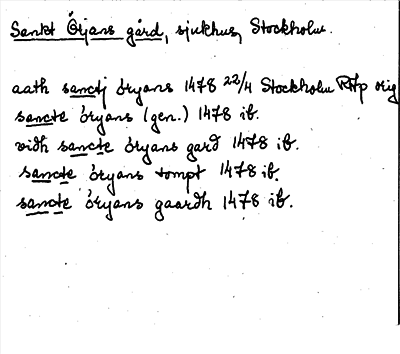 Sankt Örjans gård, sjukhus, Stockholm.
aath sanctj óryans 1478 22/4 Stockholm RAp orig
sancte óryans (gen.) 1478 ib.
vidh sancte óryans gard 1478 ib.
sancte óryans tompt 1478 ib.
sancte óryans gaardh 1478 ib.